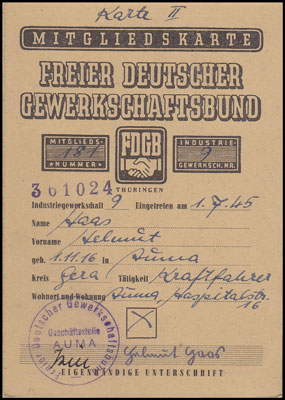 Karte II
MITGLIEDSKARTE
FREIER DEUTSCHER
GEWERKSCHAFTSBUND
MITGLIEDS-
181
NUMMER
FDGB
INDUSTRIE
9
GEWERKSCH. NR.
361024
THÜRINGEN
Industriegewerkschaft 9 Eingetreten am 1.7.45
Name Haas
Vorname Helmut
geb. 1.11.16 in Auma
Kreis Gera Tätigkeit Kraftfahrer
Wohnort und Wohnung Auma, Hospitalstr.
16
Freier Deutscher Gewerkschaftsbund
Geschäftsstelle
AUMA
Helmut Haas
EIGENHÄNDIGE UNTERSCHRIFT